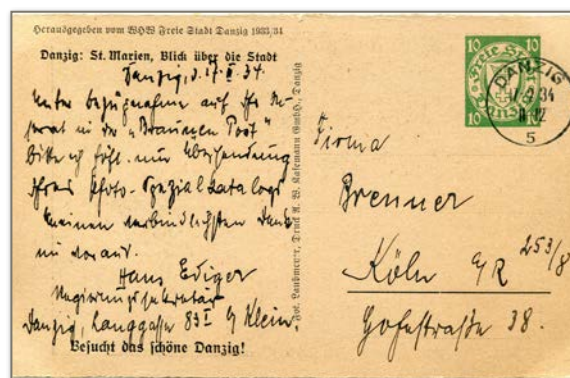 Herausgegeben vom WHW Freie Stadt Danzig 1933/34
Danzig: St. Marien, Blick über die Stadt
Danzig, d. 17. II. 34.
Unter bezugnahme auf Ihr In-
serat in der „Braunen Post“
bitte ich höfl. um Übersendung
Ihres Photo-Spezialkatalogs
Meinen verbindlichsten Dank
im voraus.
Hans Ediger
Regierungssekretär
Danzig, Langgasse 83 I b/ Klein.
Besucht das schöne Danzig!
Fot. Laubmeyer, Druck A. W. Kafemann GmbH., Danzig
10 Freie Stadt 10
10 10
DANZIG
34
5
Firma
Brenner
Köln a/R
253/8
Hohestraße 38.